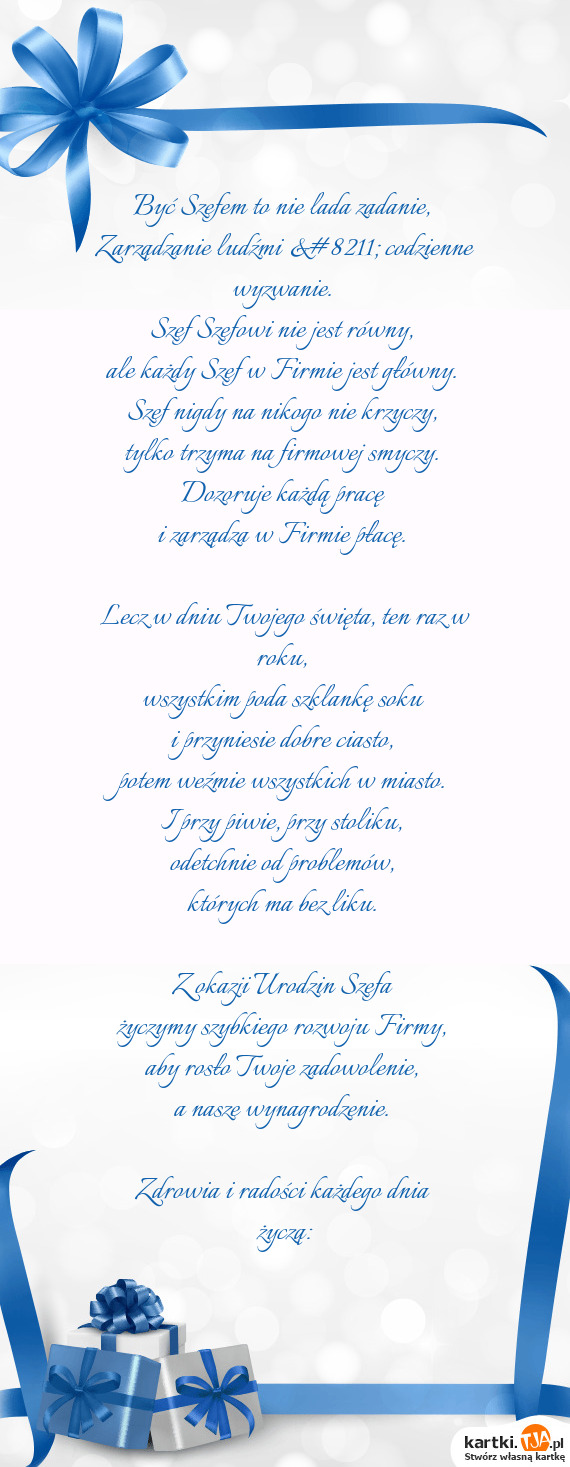 Być Szefem to nie lada zadanie,
Zarządzanie ludźmi &#8211; codzienne
wyzwanie.
Szef Szefowi nie jest równy,
ale każdy Szef w Firmie jest główny.
Szef nigdy na nikogo nie krzyczy,
tylko trzyma na firmowej smyczy.
Dozoruje każdą pracę
i zarządza w Firmie płacę.
Lecz w dniu Twojego święta, ten raz w
roku,
wszystkim poda szklankę soku
i przyniesie dobre ciasto,
potem weźmie wszystkich w miasto.
I przy piwie, przy stoliku,
odetchnie od problemów,
których ma bez liku.
Z okazji Urodzin Szefa
życzymy szybkiego rozwoju Firmy,
aby rosło Twoje zadowolenie,
a nasze wynagrodzenie.
Zdrowia i radości każdego dnia
życzą:
kartki.TJA.pl
Stwórz własną kartkę